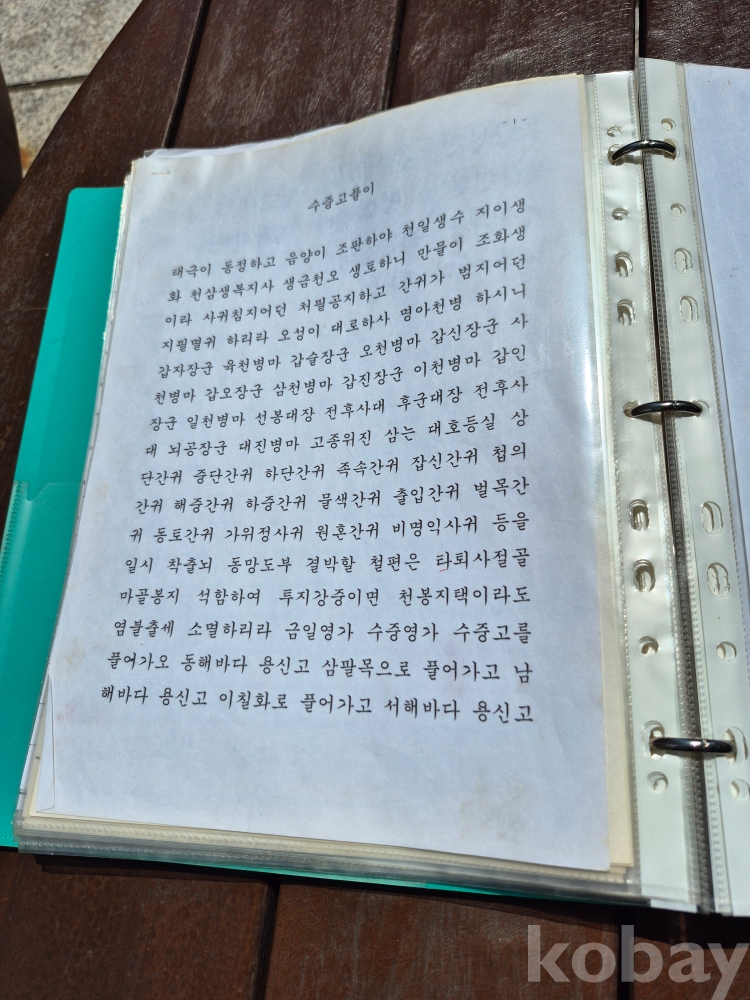 - 1 -
수중고풀이
태극이 동정하고 음양이 조판하야 천일생수 지이생
화 천삼생복지사 생금천오 생토하니 만물이 조화생
이라 사귀침지어던 처필공지하고 간귀가 범지어던
지필멸귀 하리라 오성이 대로하사 명아천병 하시니
갑자장군 육천병마 갑슬장군 오천병마 갑신장군 사
천병마 갑오장군 삼천병마 갑진장군 이천병마 갑인
장군 일천병마 선봉대장 전후사대 후군대장 전후사
대 뇌공장군 대진병마 고종위진 삼는 대호등실 상
단간귀 중단간귀 하단간귀 족속간귀 잡신간귀 첩의
간귀 해중간귀 하중간귀 물색간귀 출입간귀 벌목간
귀 동토간귀 가위정사귀 원혼간귀 비명익사귀 등을
일시 착출뇌 동망도부 결박할 철편은 타퇴사절골
마골봉지 석함하여 투지강중이면 천봉지택이라도
염불출세 소멸하리라 금일영가 수중영가 수중고를
풀어가오 동해바다 용신고 삼팔목으로 풀어가고 남
해바다 용신고 이칠화로 풀어가고 서해바다 용신고
kobay